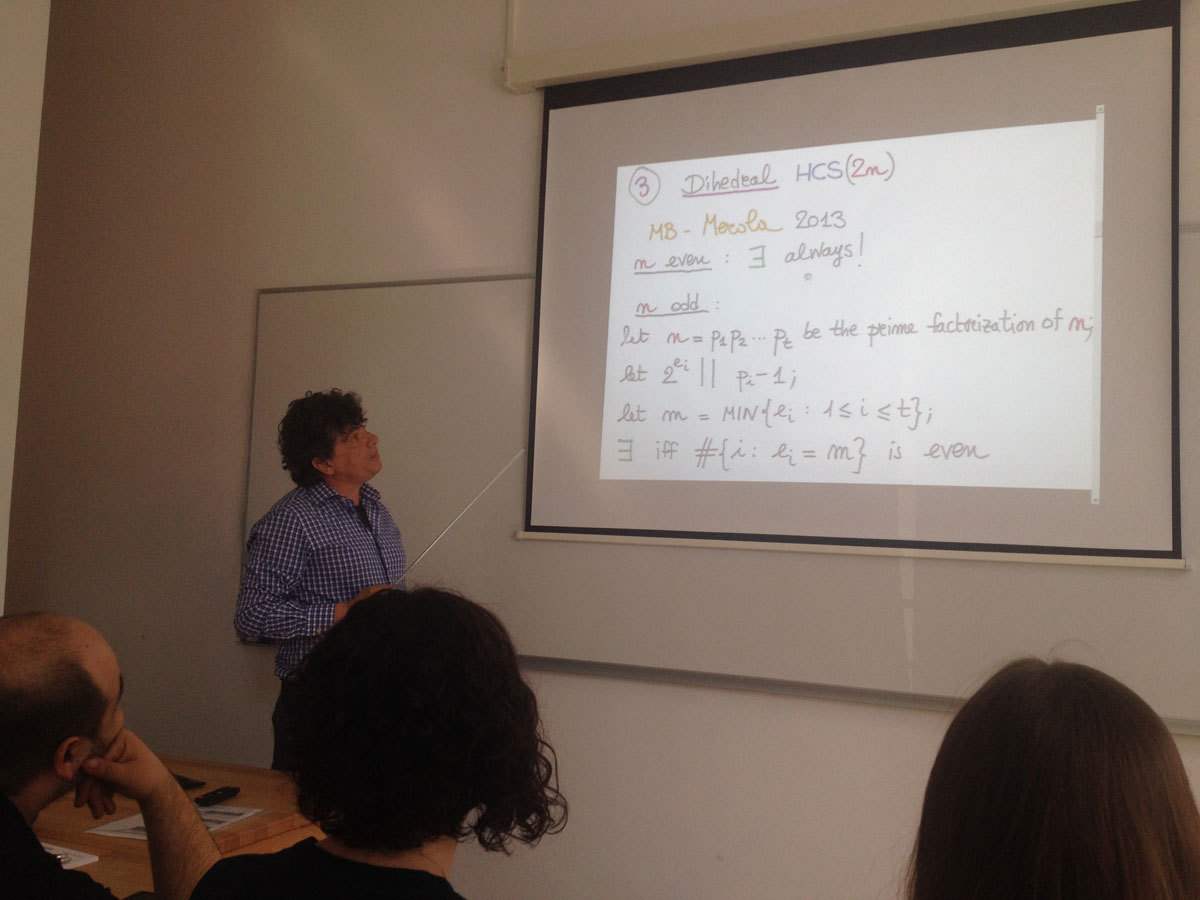 3 Dihedral HCS(2n)
MB - Merola 2013
n even : ∃ always!
n odd :
let n = p₁p₂ ··· pₜ be the prime factorization of n;
let 2^eᵢ || pᵢ - 1;
let m = MIN{eᵢ : 1 ≤ i ≤ t};
∃ iff #{i : eᵢ = m} is even